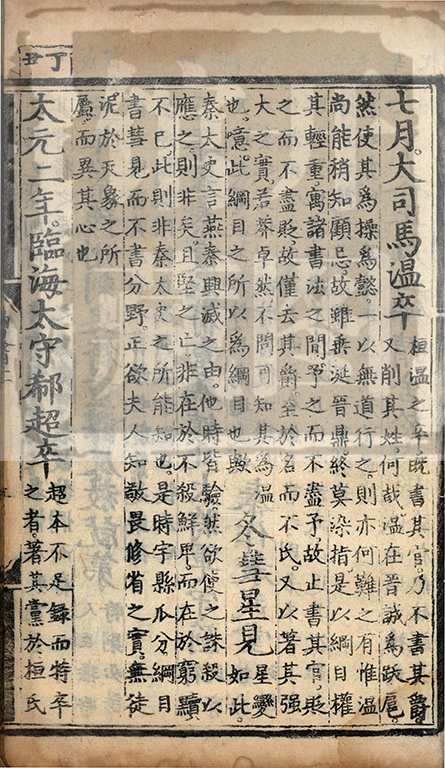 丁丑
七月。大司馬溫卒
桓溫之卒既書其官。乃不書其爵
又削其姓。何哉。溫在晉誠為跋扈。
然使其為操為懿。一以無道行之。則亦何難之有。惟溫
尚能稍知顧忌。故雖垂涎晉鼎。終莫染指。是以綱目權
其輕重。寓諸書法之間。予之而不盡予。故止書其官。貶
之而不盡貶。故僅去其爵。至於名而不氏。又以著其強
大之實。若莽卓然。不問可知其為溫
也。噫。此綱目之所以為綱目也歟
冬彗星見
星變
如此。
秦太史言燕秦興滅之由。他時皆驗。然欲使之誅殺以
應之。則非矣。且堅之亡。非在於不殺鮮卑。而在於窮黷
不已。此則非秦太史之所能知也。是時宇縣瓜分。綱目
書彗見而不書分野。正欲夫人知敬畏修省之實。無徒
泥於天象之所
屬。而異其心也
太元二年。臨海太守郗超卒
超本不足錄而特卒
之者。著其黨於桓氏